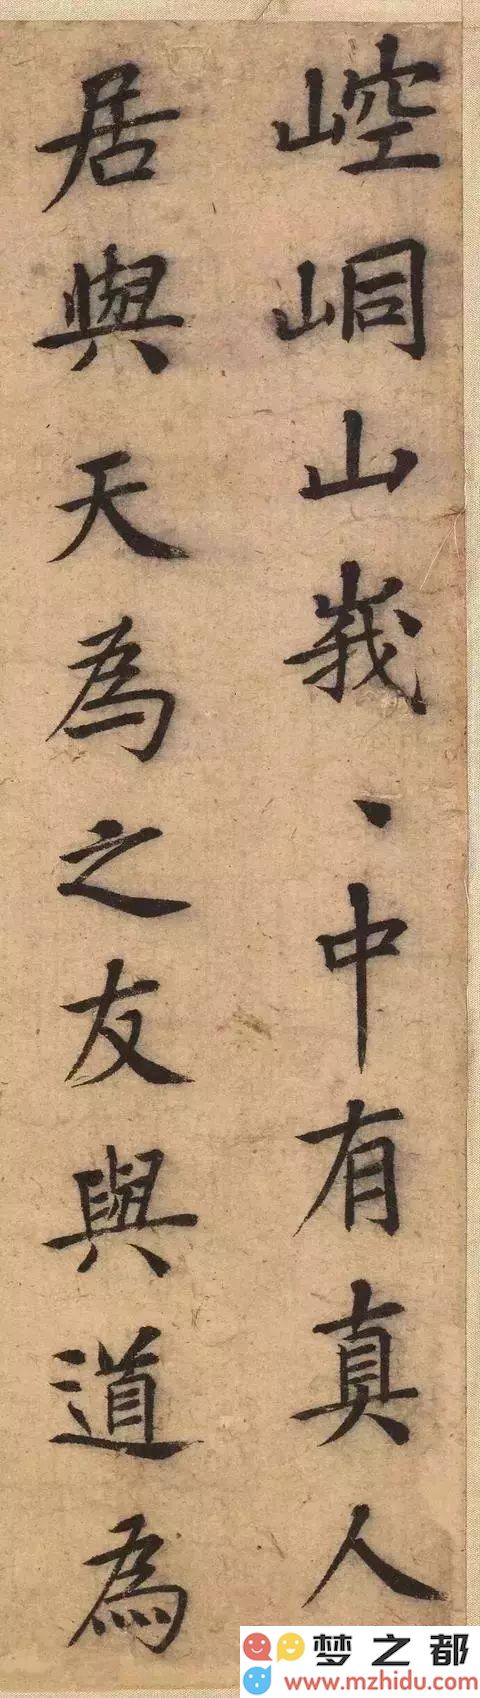 崆峒山峩、中有真人
居與天為之友與道為
梦之都
www.mzhidu.com